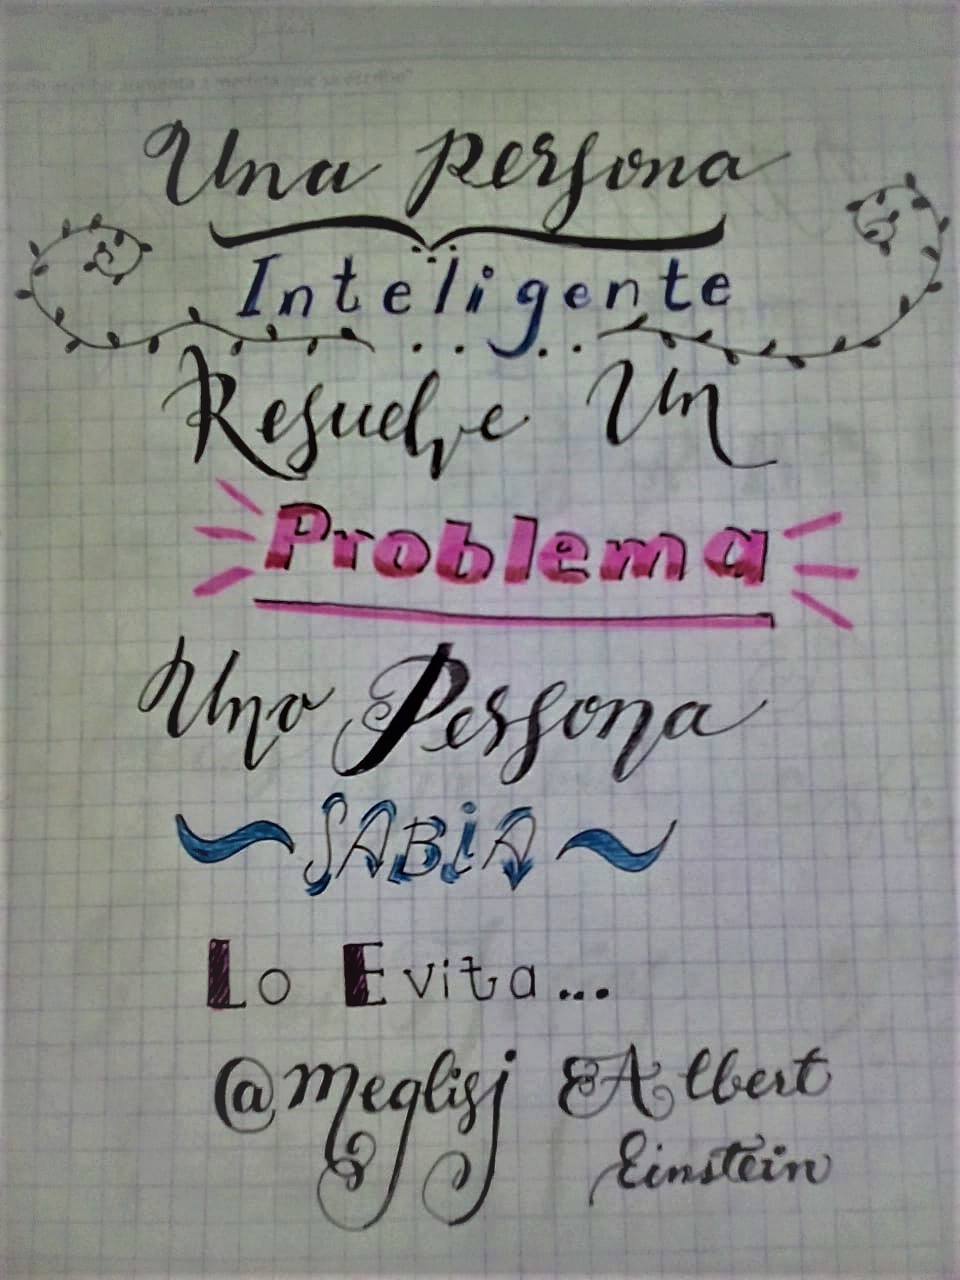 Una persona
Inteligente
Resuelve Un
Problema
Una Persona
SABiA
Lo Evita...
@Meglisj Albert
Einstein